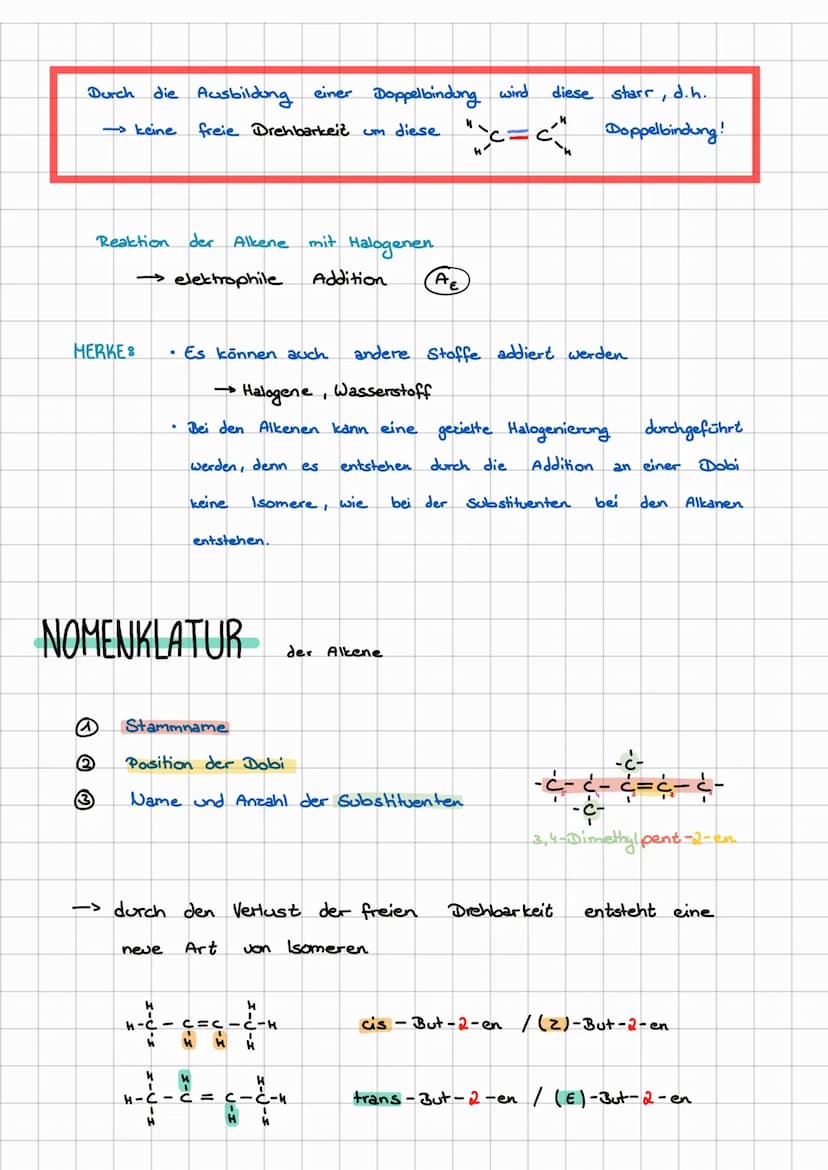 Durch die Ausbildung einer Doppelbindung wird diese starr, d.h.
→ keine freie Drehbarkeit um diese H H C=C H H Doppelbindung!
Reaktion der Alkene mit Halogenen
→ elektrophile Addition (AE)
MERKE: • Es können auch andere Stoffe addiert werden
→ Halogene, Wasserstoff
• Bei den Alkenen kann eine gezielte Halogenierung durchgeführt
werden, denn es entstehen durch die Addition an einer Dobi
keine Isomere, wie bei der Substituenten bei den Alkanen
entstehen.
NOMENKLATUR der Alkene
① Stammname
② Position der Dobi
③ Name und Anzahl der Substituenten
-C-
-C-C-C=C-C-
-C-
3,4-Dimethylpent-2-en
→ durch den Verlust der freien Drehbarkeit entsteht eine
neue Art von Isomeren
H H
H-C-C=C-C-H cis-But-2-en / (Z)-But-2-en
H H H H
H H H
H-C-C=C-C-H trans-But-2-en / (E)-But-2-en
H H H